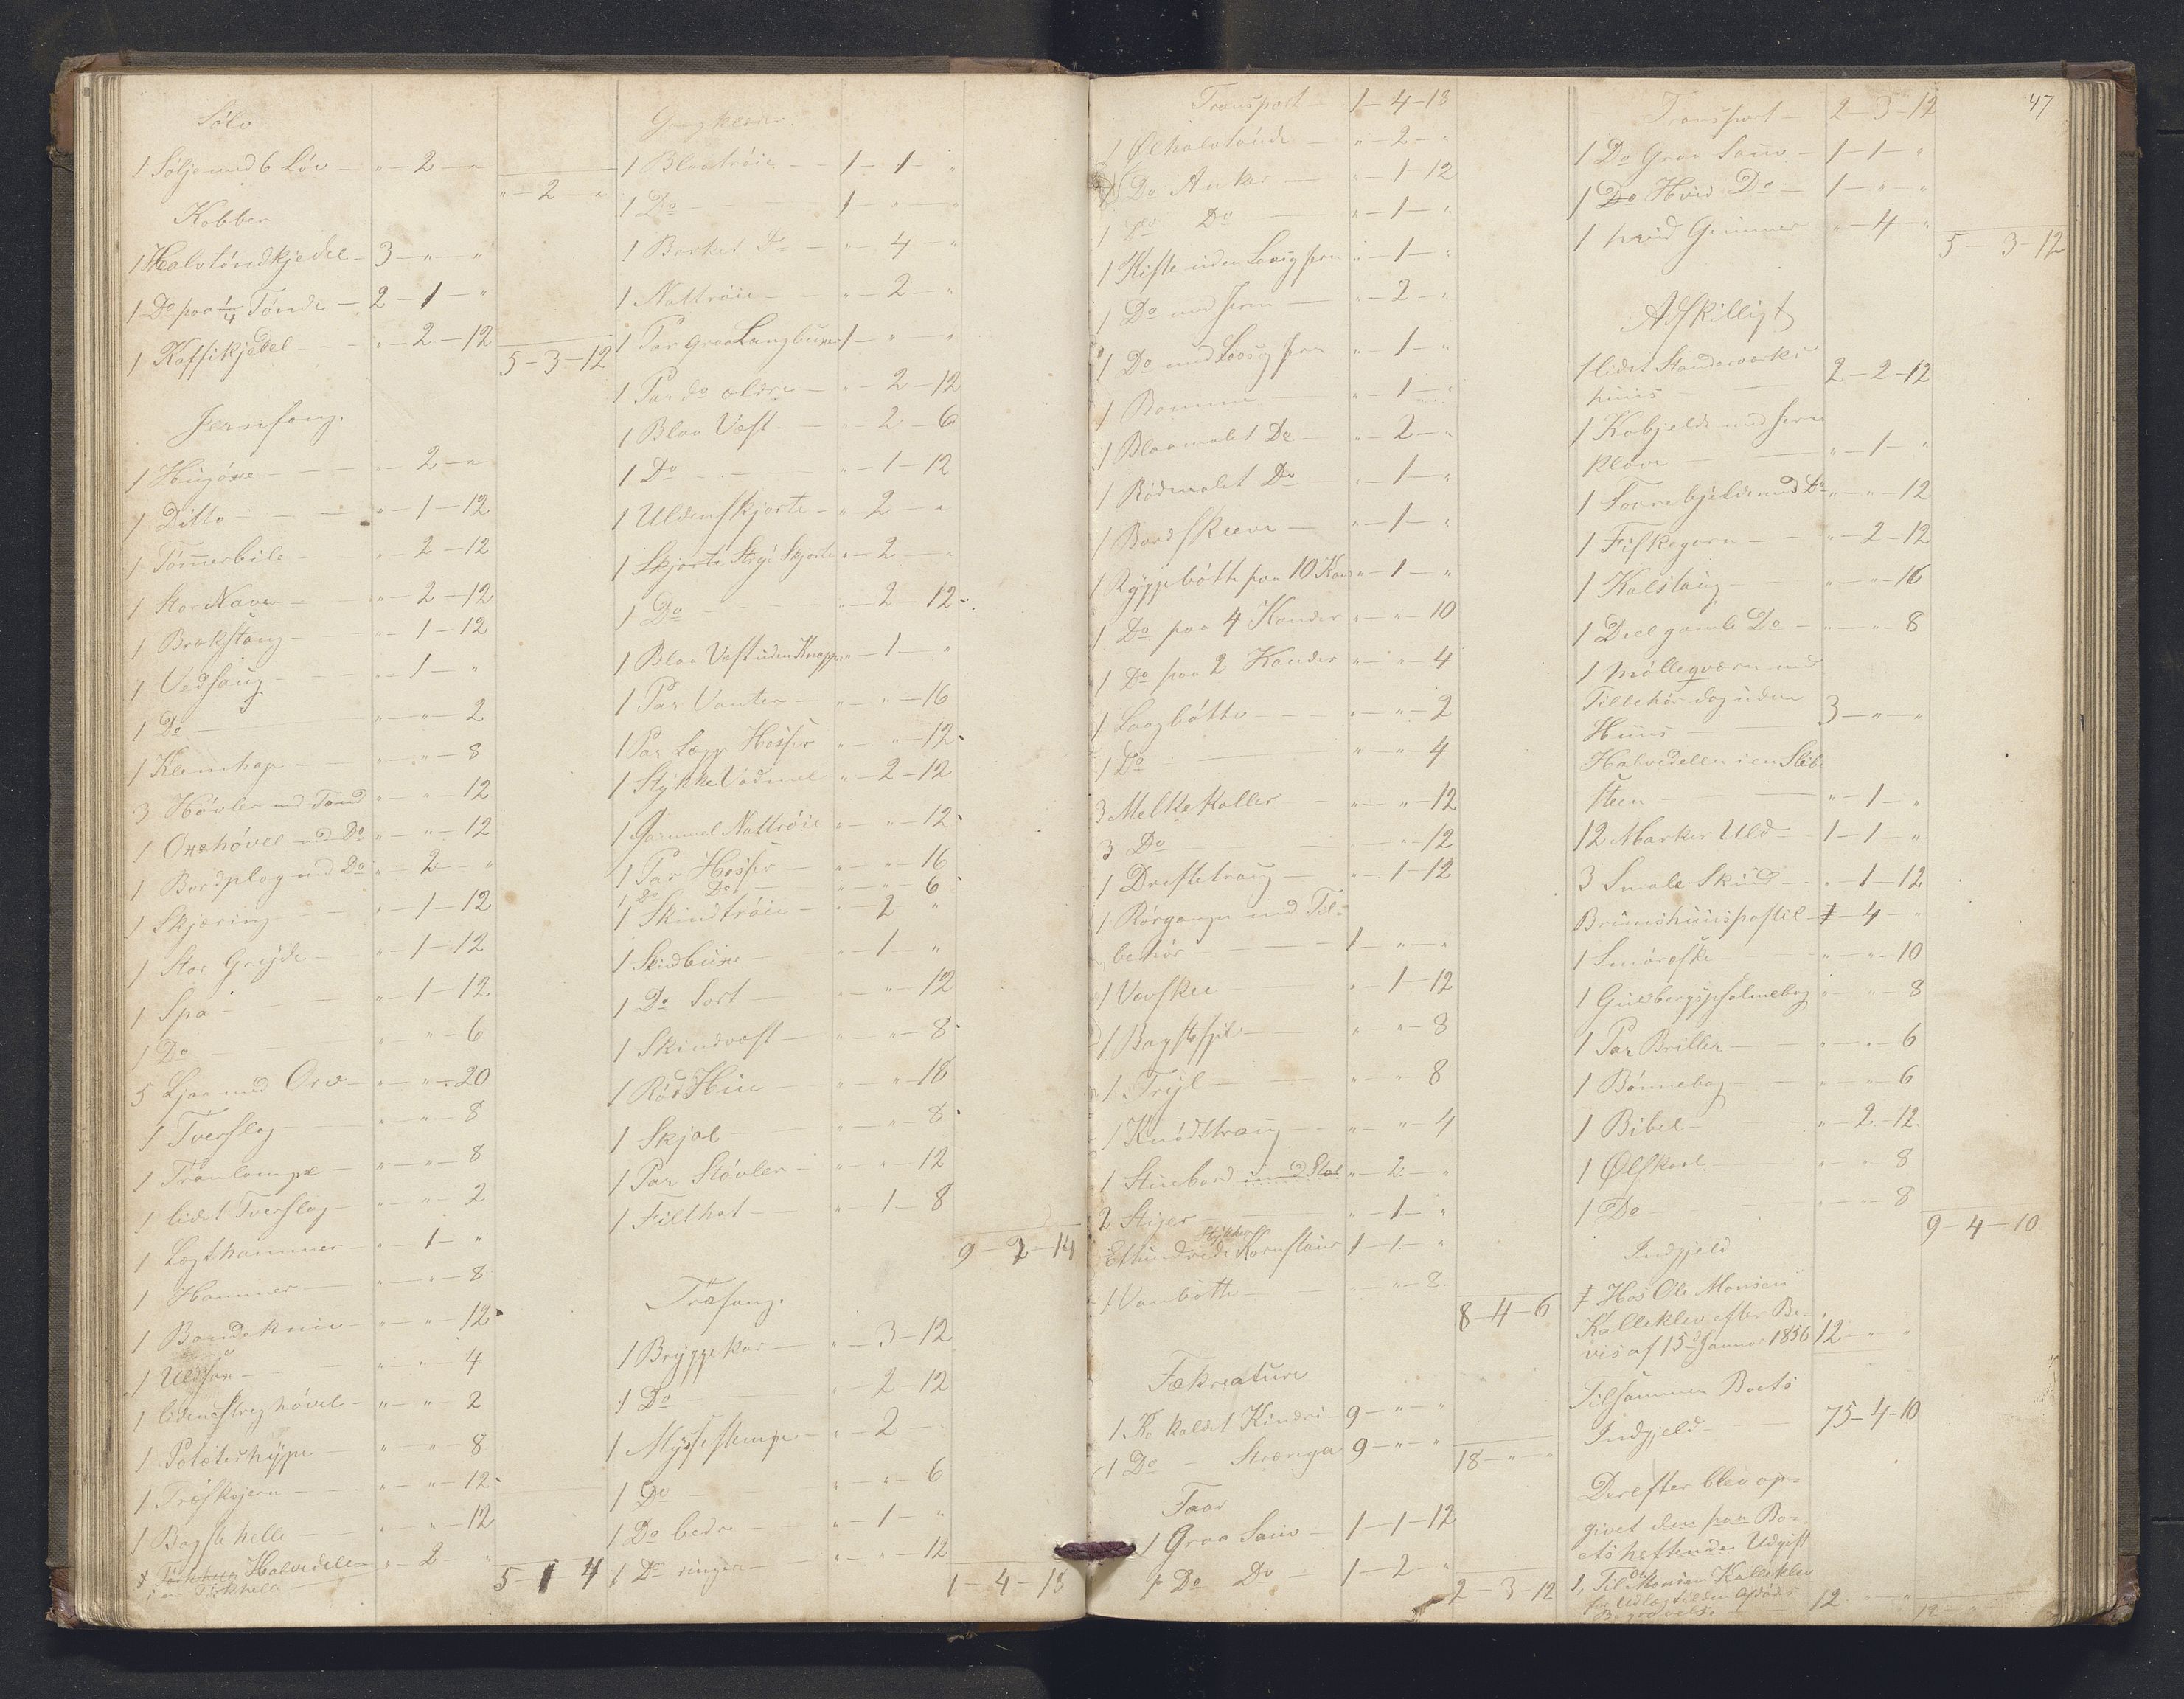 Sölv
1 Sölje med 6 Löv - " - 2 - "
" - 2 - "
Kobber
1 Halvtöndkjedel - 3 - " - "
1 Do paa 1/4 Tönde - 2 - 1 - "
1 Kaffikjedel - " - 2 - 12
5 - 3 - 12
Jernfang.
1 Hugöxe - " - 2 - "
1 Ditto - " - 1 - 12
1 Tömmerbile - " - 2 - 12
1 Stor Naver - " - 2 - 12
1 Brækstang - " - 1 - 12
1 Vedsaug - " - 1 - "
1 Do - " - " - 2
1 Klemhage - " - " - 8
3 Hövler med Tand - " - " - 12
1 Oxehövel med Do - " - " - 12
1 Bordplog med Do - " - 2 - "
1 Skjæring - " - 1 - 12
1 Stor Gryde - " - 1 - 12
1 Spa - " - 1 - 12
1 Do - " - " - 6
5 Ljaa med Orv - " - " - 20
1 Tverslag - " - " - 8
1 Tranlampe - " - " - 8
1 lidet Tverslag - " - " - 2
1 Lægthammer - " - 1 - "
1 Hammer - " - " - 8
1 Baandekniv - " - " - 12
1 Uldsax - " - " - 4
1 liden Streghövel - " - " - 2
1 Poteteshyppe - " - " - 8
1 Træskjern - " - " - 12
1 Bagstehelle - " - " - 12
Halvedelen
i en Törkhelle - " - 2 - "
5 - 1 - 4
Gangklæder
1 Blaatröie - 1 - 1 - "
1 Do - 1 - " - "
1 Borket Do - " - 4 - "
1 Nattröie - " - 2 - "
1 Par graa Langbuxer 1 - " - "
1 Par do ældre - " - 2 - 12
1 Blaa Vest - " - 2 - 6
1 Do - " - 1 - 12
1 Uldenskjorte - " - 2 - "
1 Skjorte Strye Skjorte " - 2 - "
1 Do - " - 2 - 12
1 Blaa Vest uden Knapper " - 1 - "
1 Par Vanter - " - " - 16
1 Par Lægg Hosser " - " - 12
1 Stykke Vadmel " - 2 - 12
1 Gammel Nattröie - " - " - 12
1 Par Hosser - " - " - 16
1 Do Do - " - " - 6
1 Skindtröie - " - 2 - "
1 Skindbuxe - " - 1 - "
1 Do Sort - " - " - 12
1 Skindvest - " - " - 8
1 Röd Hue - " - " - 18
1 Skjal - " - " - 8
1 Par Stövler - " - " - 12
1 Filthat - " - 1 - 8
9 - 2 - 14
Træfang.
1 Bryggekar - " - 3 - 12
1 Do - " - 2 - 12
1 Myssestampe - " - 2 -
1 Do - " - " - 6
1 Do bedre - " - 1 - "
1 Do ringere - " - " - 12
1 - 4 - 18
Transport - 1 - 4 - 18
1 Ølhalvtönde - " - 2 - "
1 Do Anker - " - 1 - 12
1 Do Do - " - 1 - "
1 Kiste uden Laas og Jern " - 1 - "
1 Do med Jern - " - 2 - "
1 Do med Laas og Jern " - 1 - "
1 Bomme - " - 1 - "
1 Blaamalet Do - " - 2 - "
1 Rödmalet Do - " - 1 - "
1 Bord skeeve - " - 1 - "
1 Ryggebötte paa 10 Kander " - 1 - "
1 Do paa 4 Kander " - " - 10
1 Do paa 2 Kander " - " - 4
1 Laagbötte - " - " - 2
1 Do - " - " - 4
3 Melkekoller - " - " - 12
3 Do - " - " - 12
1 Dreftetraug - " - 1 - 12
1 Rörgange med Til=
behör - 1 - " - "
1 Vævskee - " - 1 - 12
1 Bagstefjel - " - " - 8
1 Tryl - " - " - 8
1 Knödetraug - " - " - 4
1 Stuebord med Stol " - 2 - "
2 Stiger - " - 1 - "
Stykker
Ethundrede Kornstaur 1 - 1 - "
1 Vandbötte - " - " - 8
8 - 4 - 6
Fækreature
1 Ko kaldet Kindrei - 9 - " - "
1 Do - Strænga 9 - " - "
18 - " - "
Faar
1 Graa Sauv - 1 - 1 - 12
1 Do Do - 1 - 2 - "
2 - 3 - 12
47
Transport - 2 - 3 - 12
1 Do Graa Sauv - 1 - 1 - "
1 Do Hvid Do - 1 - " - "
1 hvid Gimmer " - 4 - "
5 - 3 - 12
Adskilligt
1 lidet Standværks=
huus - 2 - 2 - 12
1 Kobjelde med Jern
klave - " - 1 - "
1 Faarebjelde med Do " - " - 12
1 Fiskegarn - " - 2 - 12
1 Kalstaug - " - " - 16
1 Deel gamle Do - " - " - 8
1 Mölleqværn med
Tilbehör dog uden
Huus - 3 - " - "
Halvedelen i en Slibe
steen - " - 1 - "
12 Marker Uld - 1 - 1 - "
3 Smale Skind - " - 1 - 12
4 - "
1 Smöræske - " - " - 10
1 Guldbergs Psalmebog " - " - 8
1 Par Briller - " - " - 6
1 Bönnebog - " - " - 6
1 Bibel - " - 2 - 12
1 Ølskaal - " - " - 8
1 Do - " - " - 8
9 - 4 - 10
Indgjeld
Hos Ole Monsen
Kalleklev efter Be=
vis af 15de Januar 1856 12 - " - "
Tilsammen Boets
Indgjeld - 75 - 4 - 10
Derefter blev op=
givet den paa Bo=
ets heftende Udgift
1, Til Ole Monsen Kalleklev
for Udlæg til den Afdödes
Begravelse - 12 - " - "
12 - "